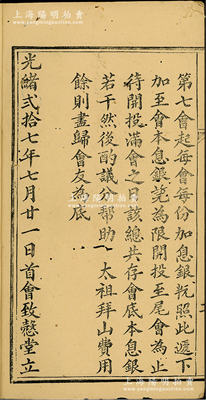 上海陽明拍賣
第七會起每會每份加息銀㡬照此遞下
加至會本息銀㡬為限開投至尾會為止
待開投滿會之日該總共存會底本息銀
若干然後酌議分帮助太祖拜山費用
餘則盡歸會友為底
光緒弍拾七年七月廿一日首會致慤堂立